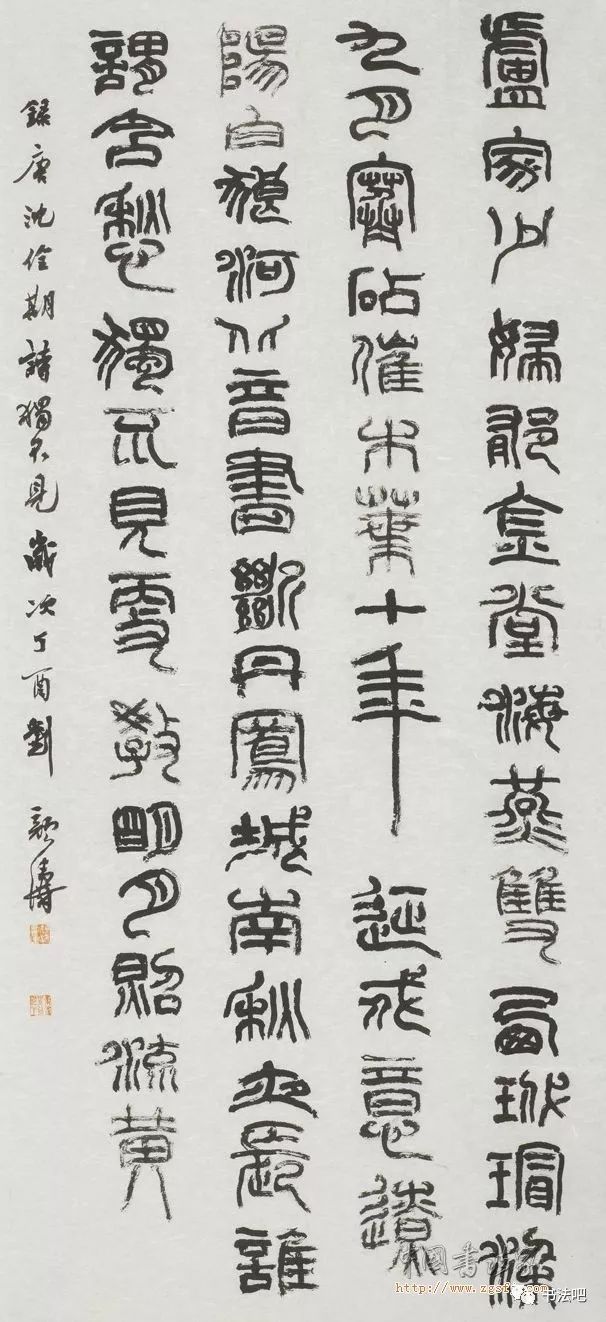 盧家少婦郁金堂海燕雙西玳瑁梁
九月寒砧催木葉十年征戍意遼
陽白狼河北音書斷丹鳳城南秋夜長誰
謂含愁獨不見更教明月照流黃
錄唐沈佺期詩獨不見歲次丁酉劉顏濤
中國書法
http://www.zgsf
书法吧